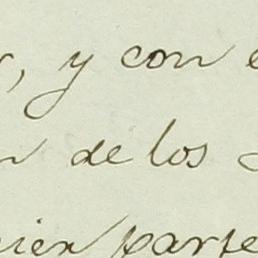 y con
de los
parte